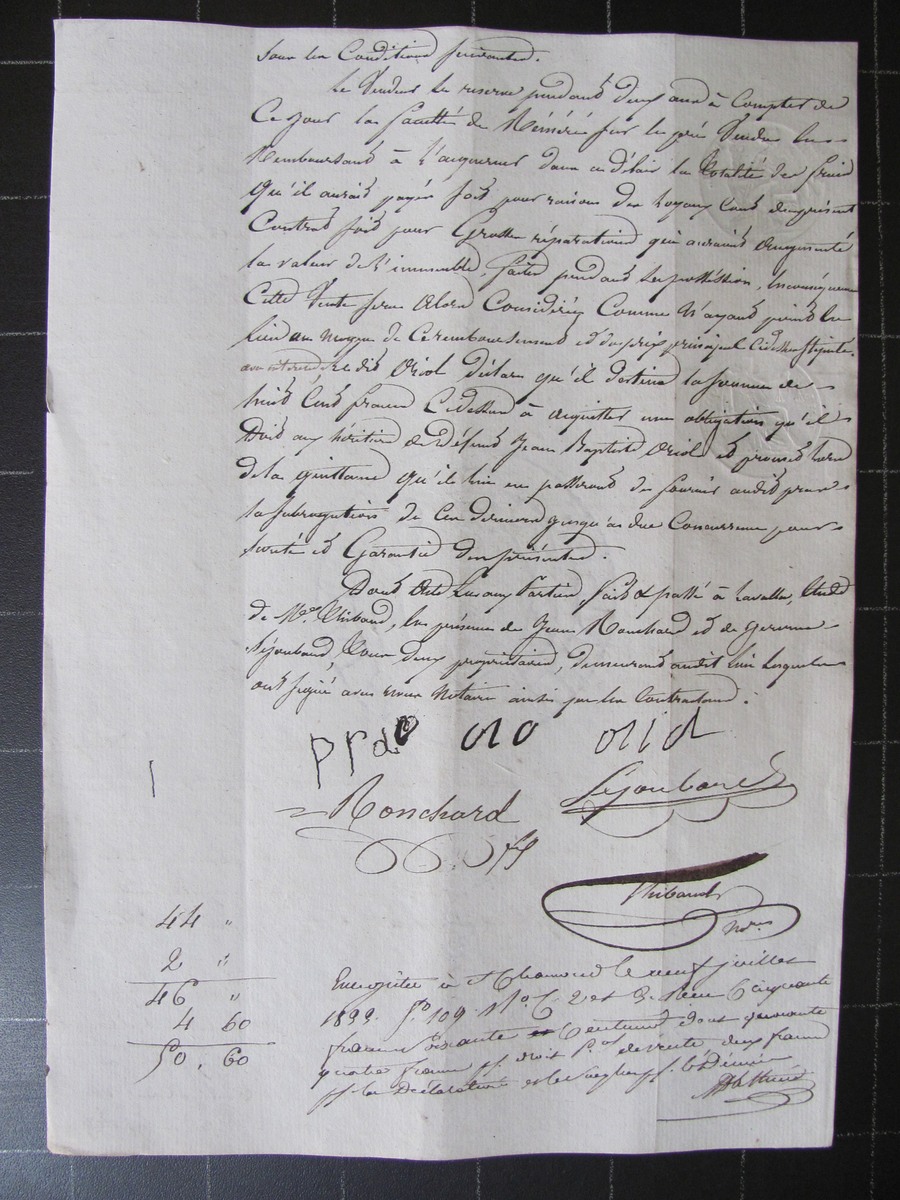 sous les Conditions suivantes.
Le Vendeur se reserve pendant deux ans à Compter de
Ce jour la faculté de Réméré sur le pré Vendu En
Remboursant à l'acquereur dans ce délai la totalité des frais
qu'il aurait payés soit pour raison des loyaux Couts du présent
Contrat soit pour Grosses réparations qui auraient Augmenté
la valeur de l'immeuble, faites pendant sa possession, En conséquence
Cette Vente sera Alors Considérée Comme N'ayant point Eu
Lieu au moyen de Ce remboursement et du prix principal Cidessus stipulé.
Ledit Oriol déclare qu'il destine la somme de
huit Cent francs Cidessus à acquitter une obligation qu'il
Doit aux héritiers de Défunt Jean Baptiste Oriol et promet lors
de la quittance qu'il lui en passeront de fournir audit
la subrogation de Ces derniers jusqu'à due Concurrence pour
sureté et Garantie des présentes.
Dont Acte Lu aux Parties, fait & passé à Lavalla, Etude
de Me Thibaud, En présence de Jean Ronchard et de
Séjoubard, tous deux propriétaires, demeurant audit lieu lesquels
ont signé avec nous Notaire ainsi que les Contractants.
oriol
Ronchard
Séjoubard
Thibaud
Nore
44 "
2 "
46 "
4 60
50. 60
Enregistré à St Chamond le neuf juillet
fo 109 Ro C. 2 et 3. Reçu Cinquante
francs soixante Centimes dont quarante
quatre francs pr droit de vente deux francs
pr la Déclaration et le pr le Décime